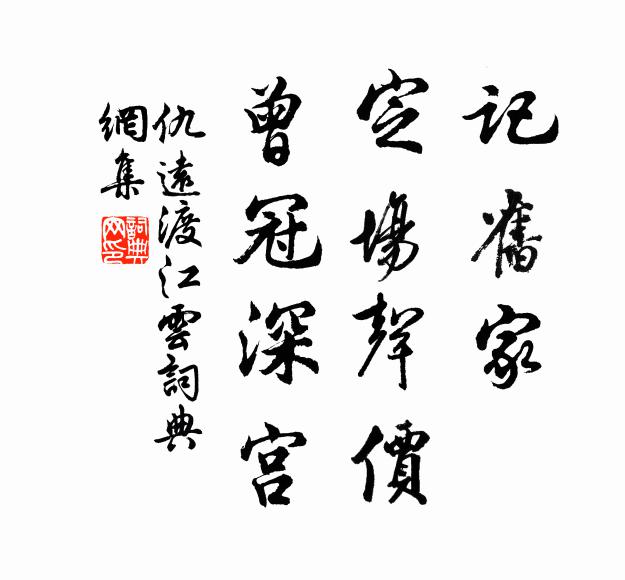 記舊家
定場聲價
曾冠深宮
仇遠渡江雲詞典
網集
詞典网印